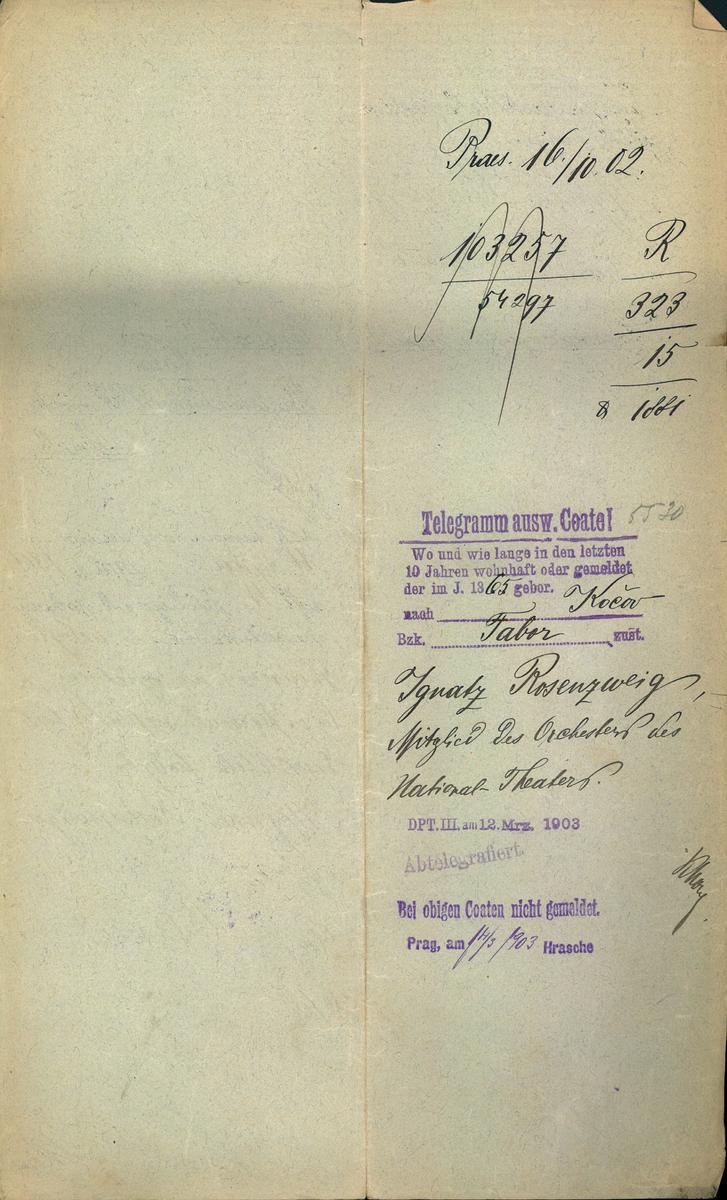 Praes. 16/10.02.
103257
54297
R
323
15
& 1881
Telegramm ausw. Coate! 5520
Wo und wie lange in den letzten
10 Jahren wohnhaft oder gemeldet
der im J. 1865 gebor.
nach Kočov
Bzk. Tabor zust.
Ignatz Rosenzweig,
Mitglied des Orchesters des
National-Theaters.
DPT. III. am 12. Mrz. 1903
Abtelegrafiert.
Bei obigen Coaten nicht gemeldet.
Prag, am 14/3 1903 Hrasche